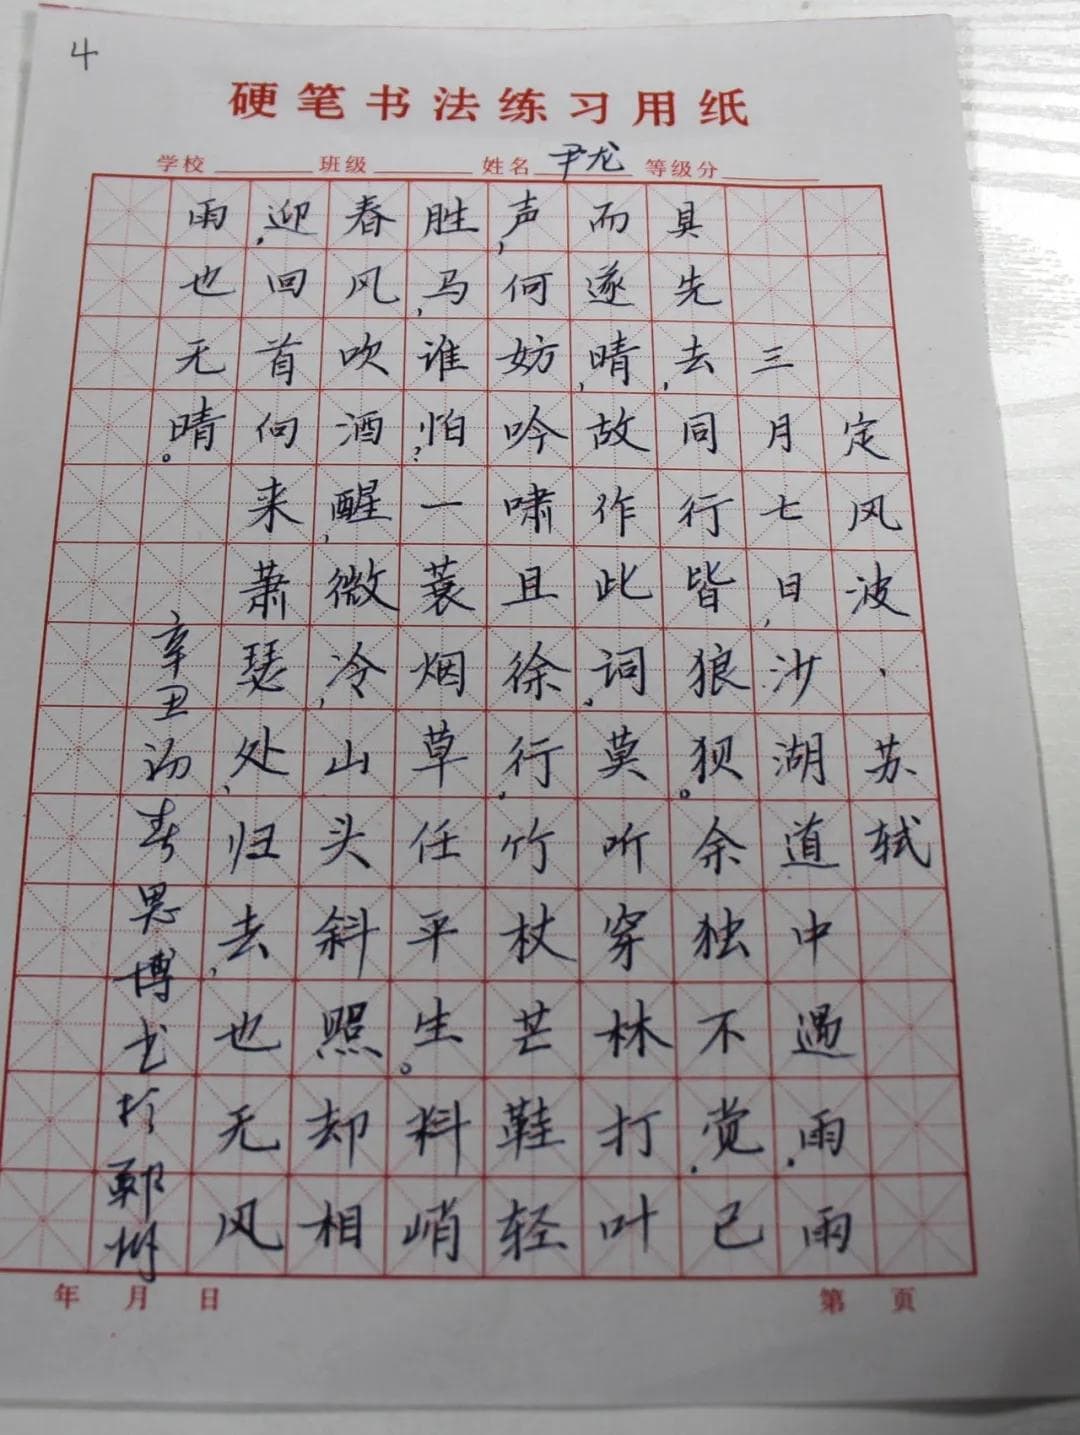 4
硬笔书法练习用纸
学校 班级 姓名 尹龙 等级分
定风波、苏轼
三月七日,沙湖道中遇雨。雨
具先去,同行皆狼狈。余独不觉,已
而遂晴,故作此词。莫听穿林打叶
声,何妨吟啸且徐行。竹杖芒鞋轻
胜马,谁怕?一蓑烟草任平生。料峭
春风吹酒醒,微冷,山头斜照却相
迎,回首向来萧瑟处,归去,也无风
雨也无晴。
辛丑初春思博书于郑州
年 月 日 第 页